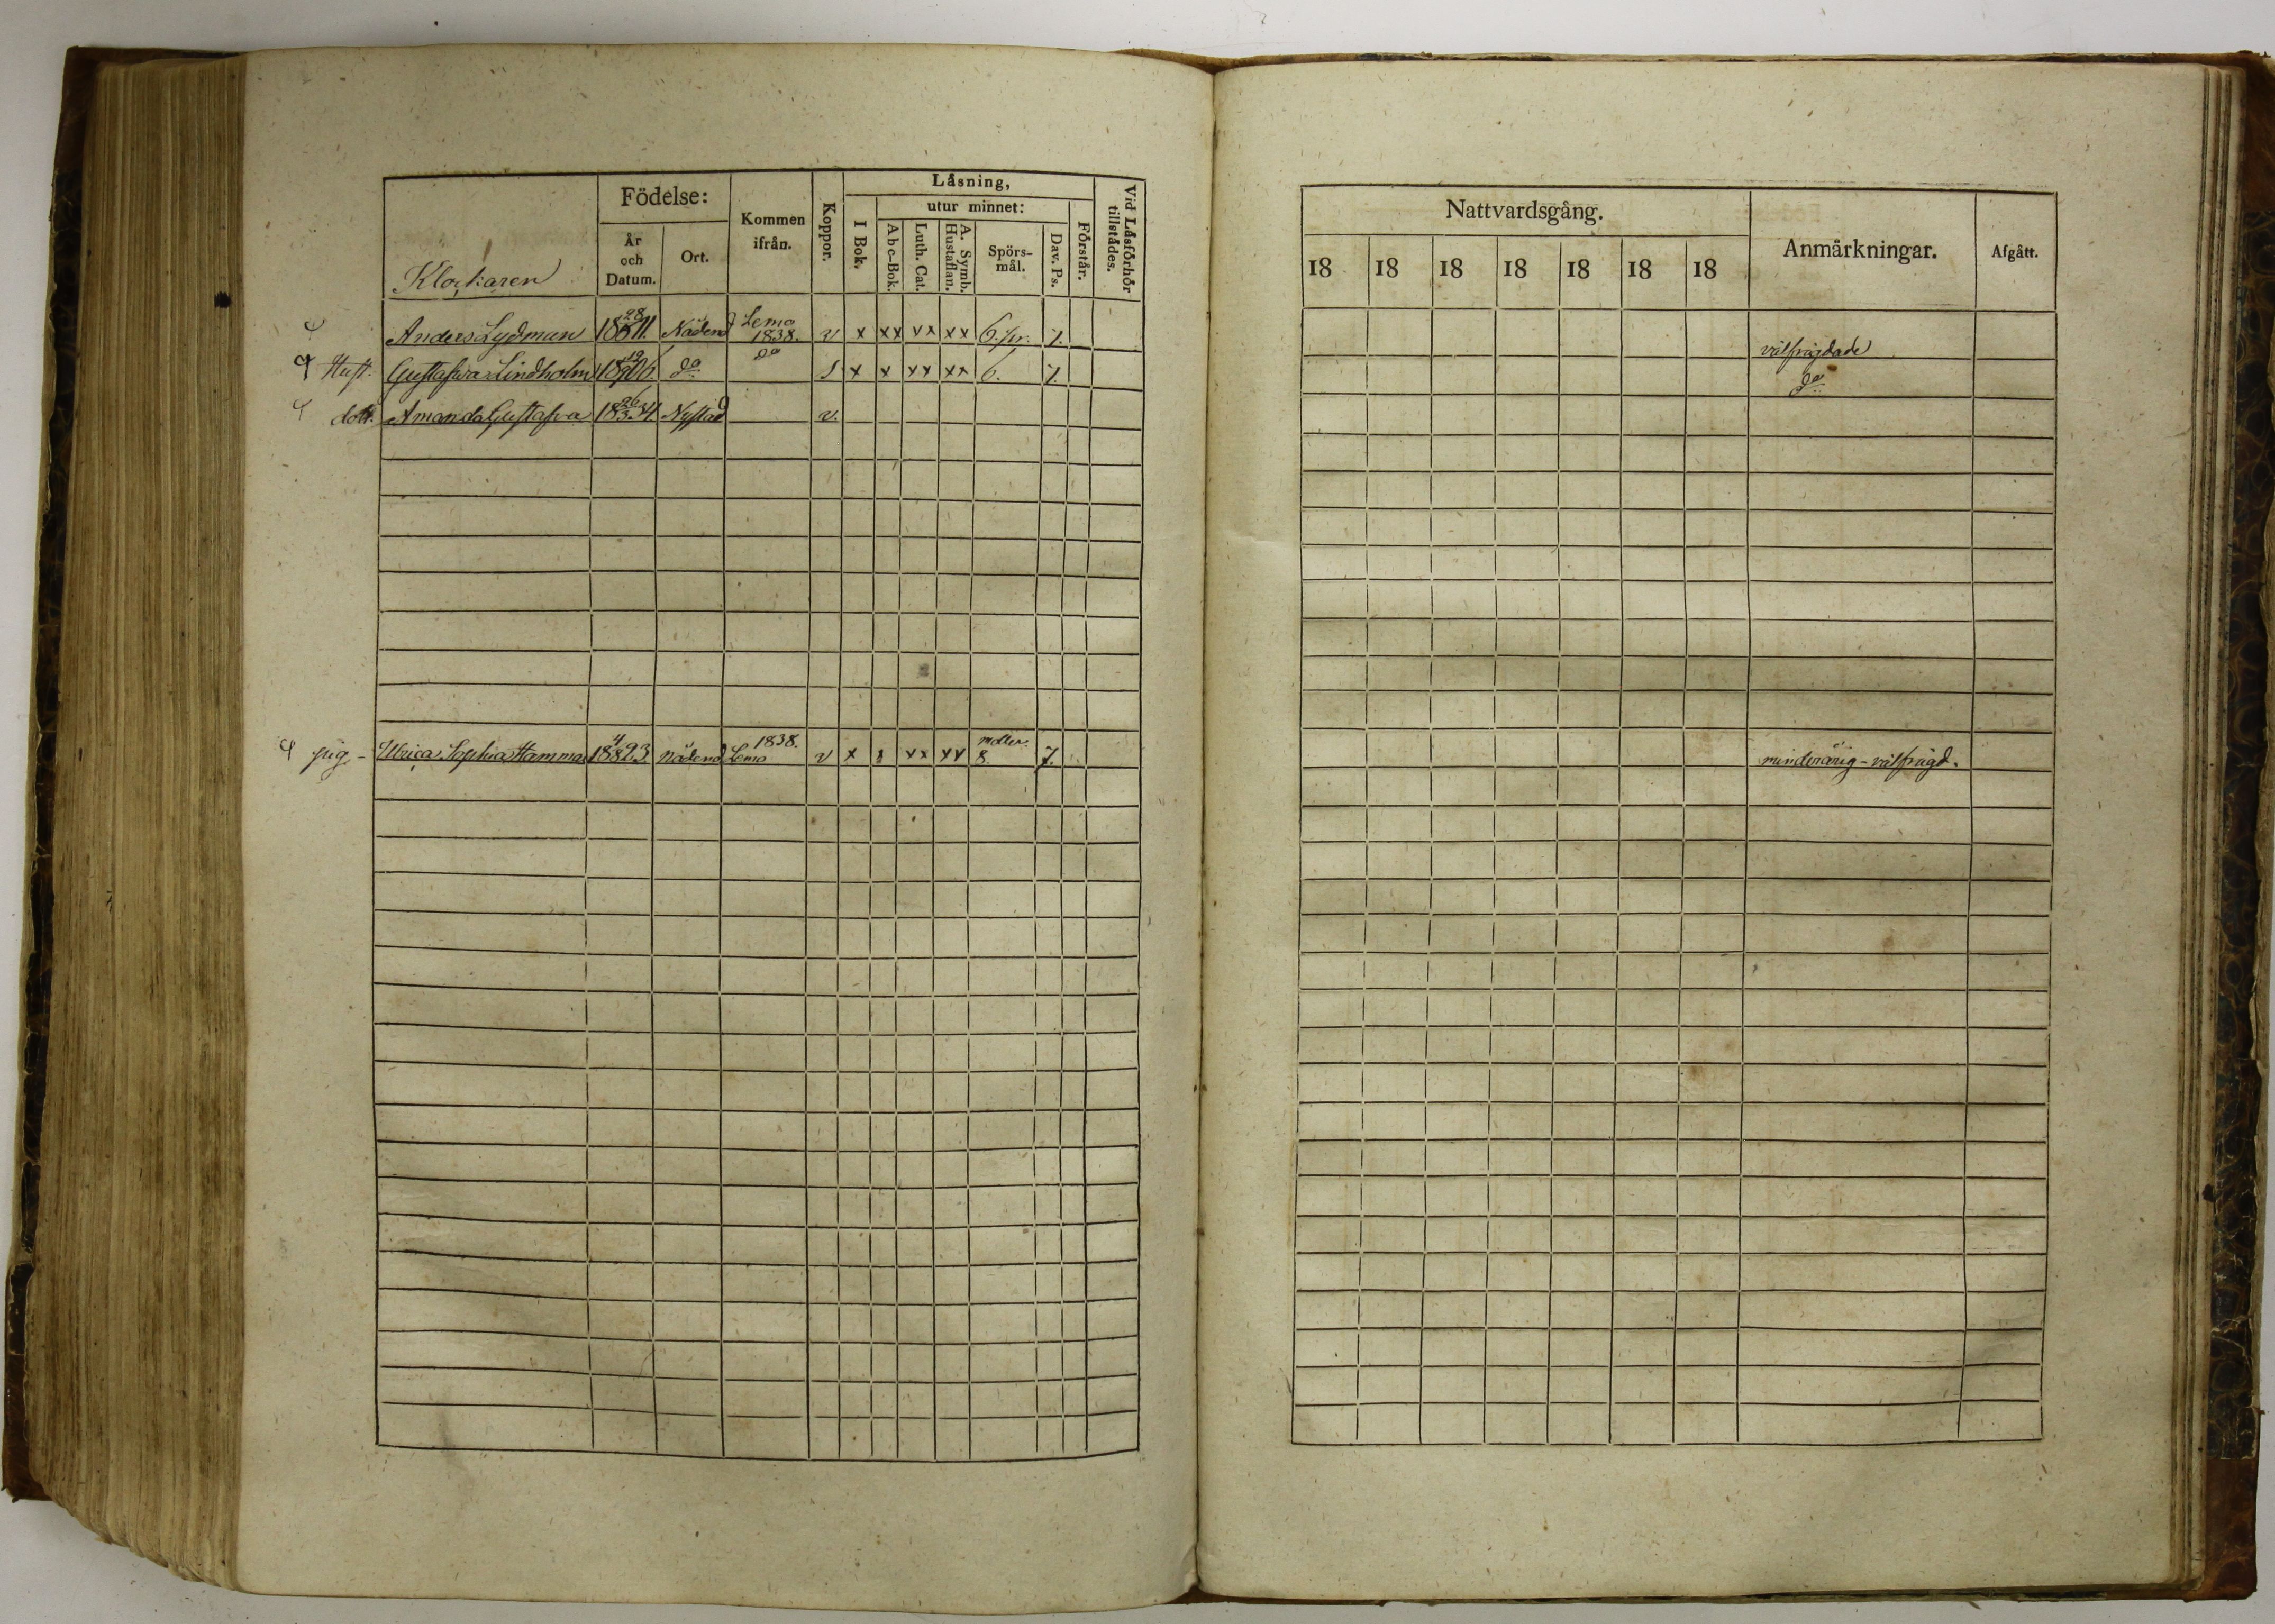 Klockaren
Födelse:
År och Datum.
Ort.
Kommen ifrån.
Koppor.
Låsning,
I Bok.
utur minnet:
Abc-Bok.
Luth. Cat.
A. Symb. Hustaflan.
Spörs-mål.
Dav. Ps.
Förstår.
Vid Låsförhör tillstädes.
Nattvardsgång.
18 18 18 18 18 18 18
Anmärkningar.
Afgått.
Anders Lydman 18 28 11 Nådend Lemo 1838. v x xx xx xx 6. 7.
välfrägdade
Hust. Gustafva Lindholm 18 06 do do s x x xx xx 6. 7.
do
dott. Amanda Gustafva 18 26/3 34 Nystad v.
pig. Ulrica Sophia Hamma 18 4/8 23 Nådend Lemo 1838. v x xx xx 8 7.
minderårig - välfrägd.